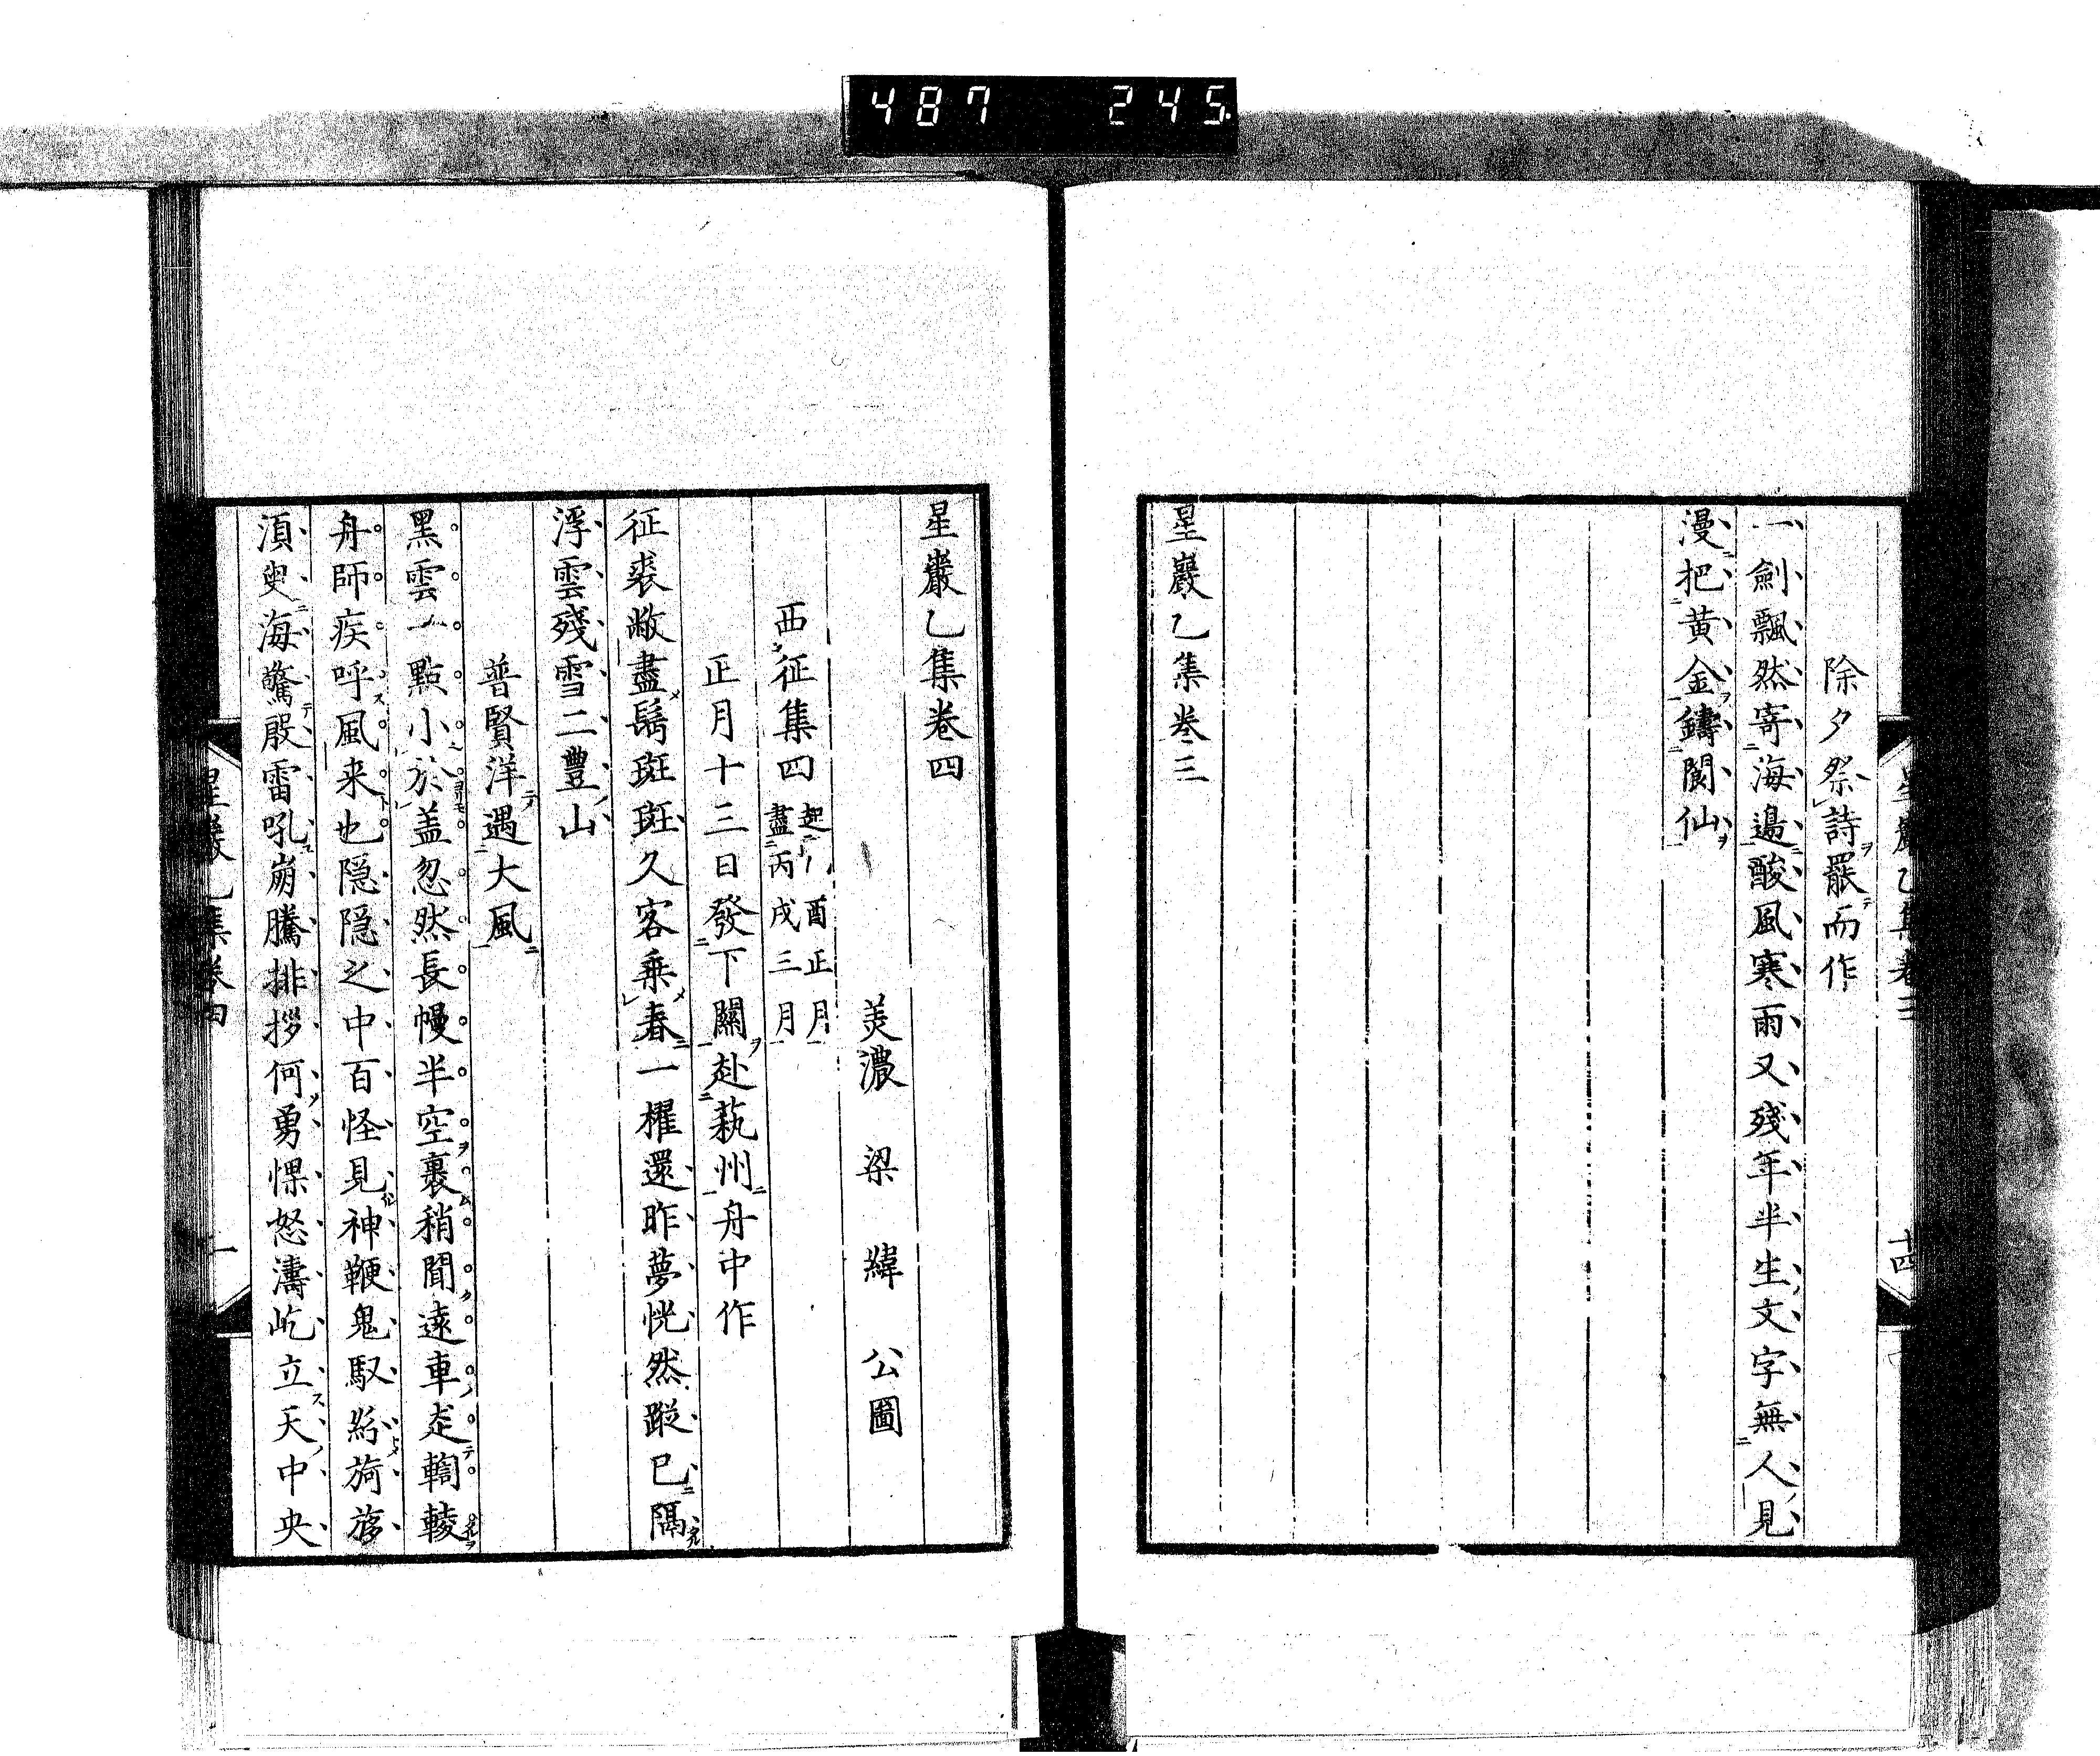 487 245
除夕祭詩罷而作
一劍飄然寄海邊酸風寒雨又殘年半生文字無人見
漫把黃金鑄閬仙
星巖乙集卷三
十四
星巖乙集卷四
美濃 梁 緯 公圖
西征集四
起 酉正月
盡丙戌三月
正月十三日發下關赴萩州舟中作
征裘敝盡鬢斑斑久客乘春一櫂還昨夢恍然蹤已隔
浮雲殘雪二豐山
普賢洋遇大風
黑雲一點小於盖忽然長幔半空裹稍聞遠車走輷輘
舟師疾呼風来也隠隠之中百怪見神鞭鬼馭紛旖旎
湏臾海驚殷雷吼崩騰排拶何勇慓怒濤屹立天中央
星巖乙集卷四
一